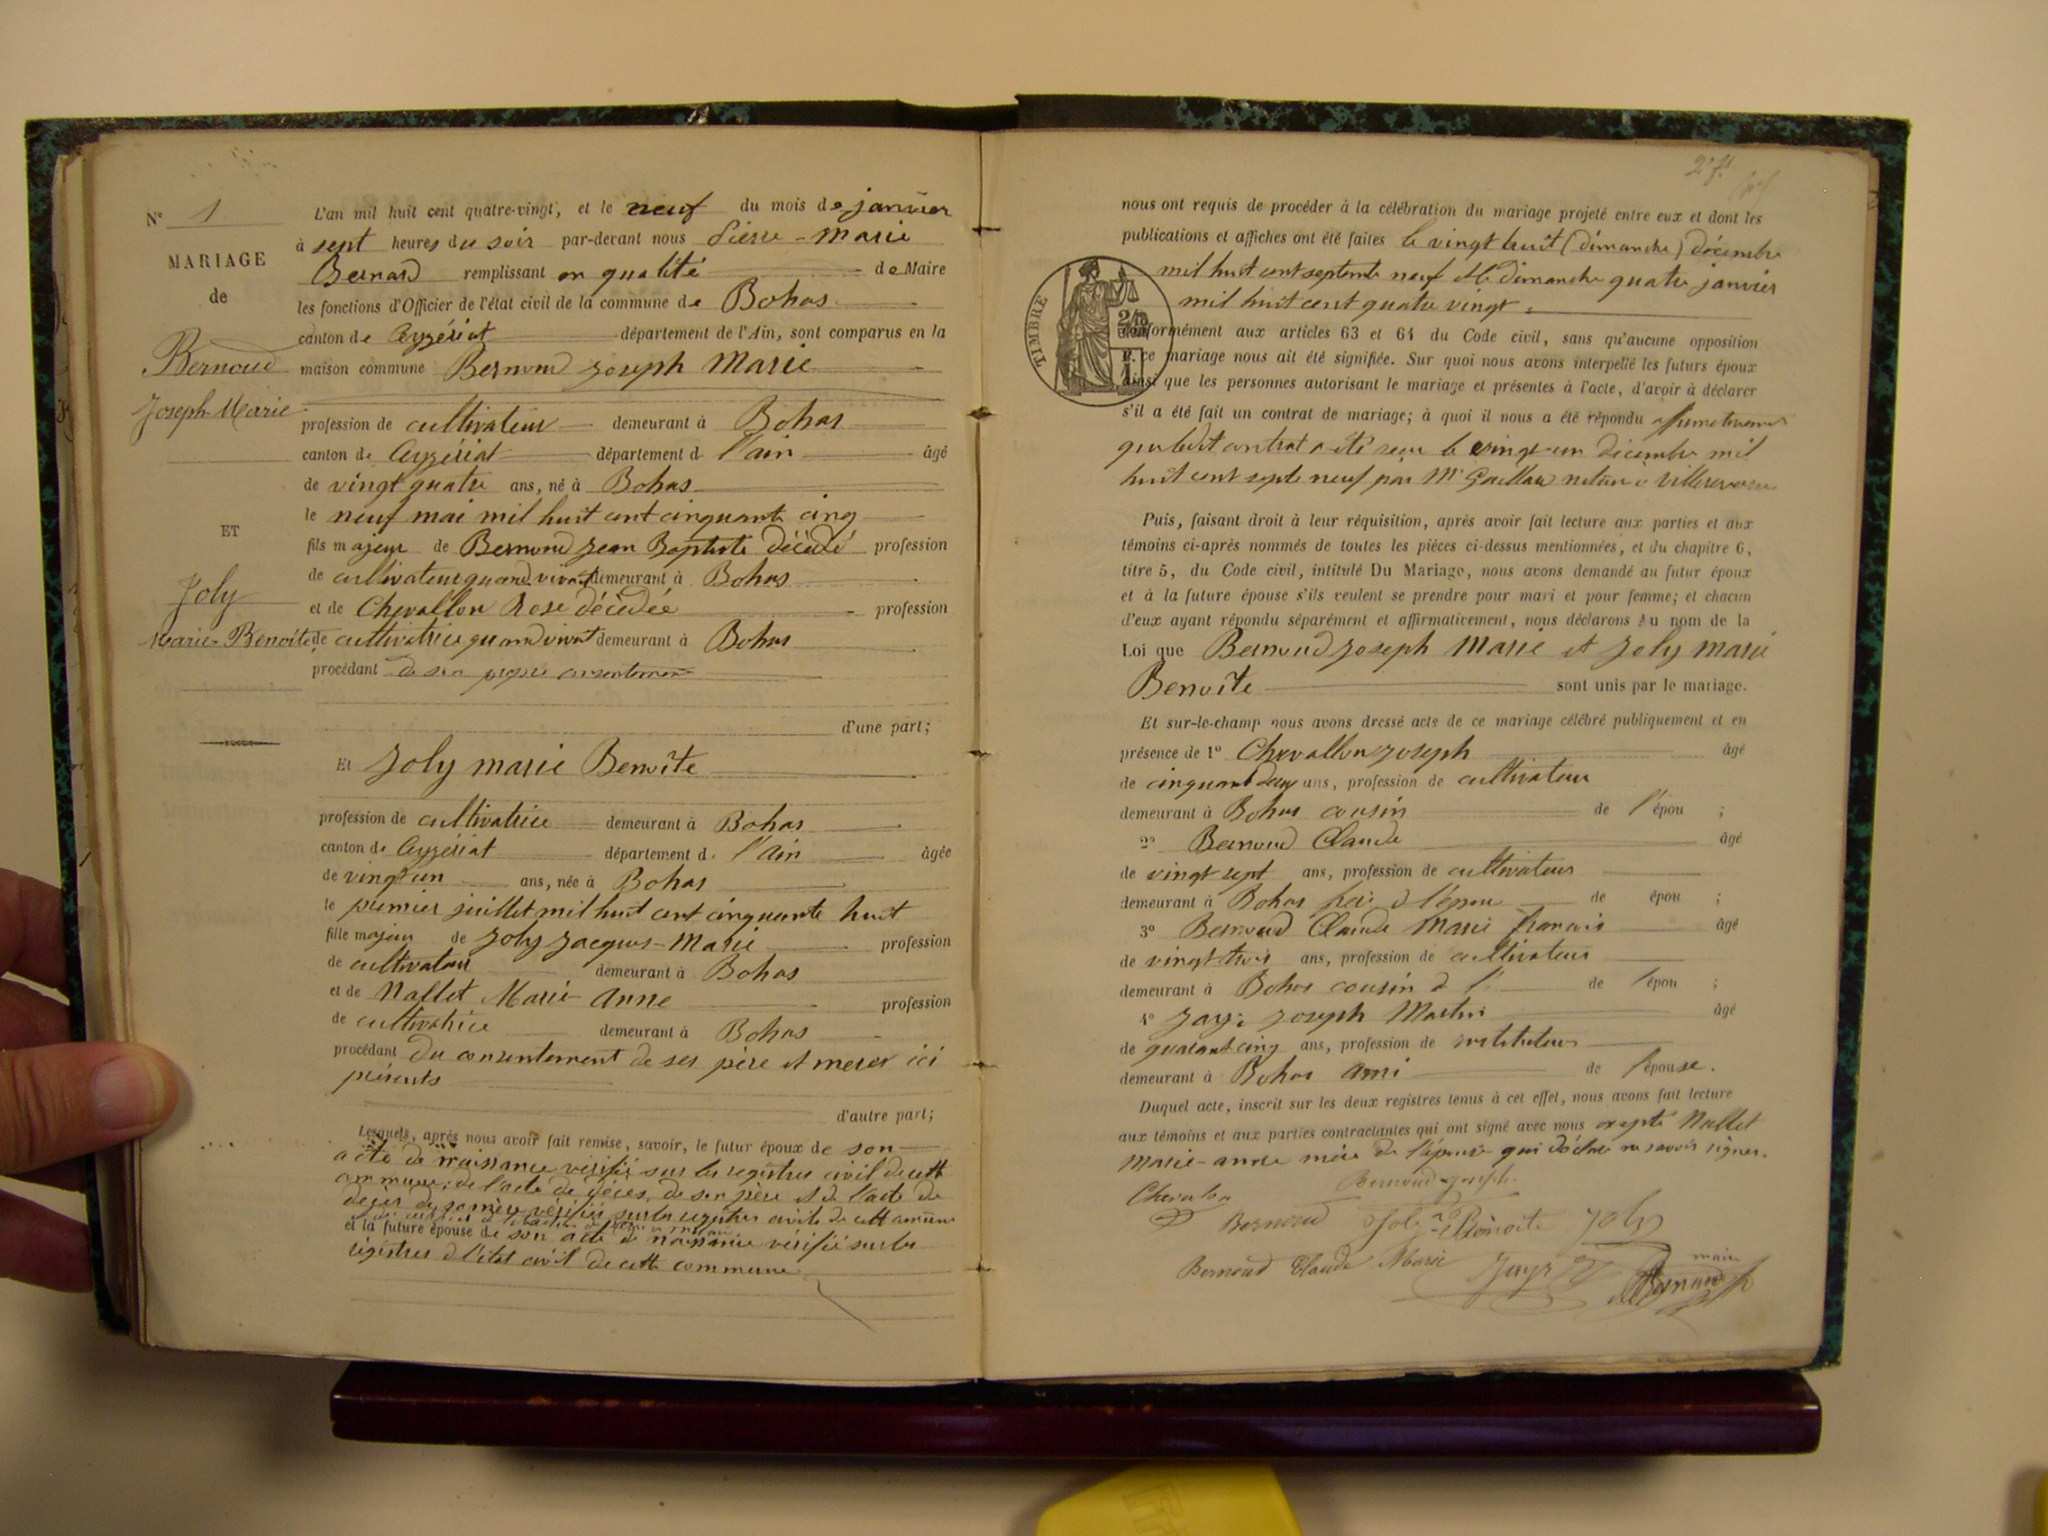 N° 1
MARIAGE
de
Bernoud
Joseph Marie
ET
Joly
Marie Benoîte
L'an mil huit cent quatre-vingt, et le neuf du mois de janvier
à sept heures du soir par-devant nous Pierre-Marie
Bernard remplissant en qualité de Maire
les fonctions d'Officier de l'état civil de la commune de Bohas
canton de Ceyzériat département de l'Ain, sont comparus en la
maison commune Bernoud Joseph Marie
profession de cultivateur demeurant à Bohas
canton de Ceyzériat département d l'ain âgé
de vingt quatre ans, né à Bohas
le neuf mai mil huit cent cinquante cinq
fils majeur de Bernoud Jean Baptiste décédé profession
de cultivateur quand vivait demeurant à Bohas
et de Chevallon Rose décédée profession
de cultivatrice quand vivait demeurant à Bohas
procédant de son propre consentement
d'une part;
Et Joly marie Benoîte
profession de cultivatrice demeurant à Bohas
canton de Ceyzériat département d. l'Ain âgée
de vingt un ans, née à Bohas
le premier juillet mil huit cent cinquante huit
fille majeur de Joly Jacques-Marie profession
de cultivateur demeurant à Bohas
et de Nallet Marie Anne profession
de cultivatrice demeurant à Bohas
procédant du consentement de ses père et meres ici
présents
d'autre part;
Lesquels, après nous avoir fait remise, savoir, le futur époux de son
acte de naissance vérifié sur les registres civil de cette
commune; de l'acte de décès de son père et de l'acte de
décès de sa mère vérifiés sur les registres civils de cette commune
et la future épouse de son acte de naissance vérifié sur les
régistres d l'état civil de cette commune
2e ft
nous ont requis de procéder à la célébration du mariage projeté entre eux et dont les
publications et affiches ont été faites le vingt huit (dimanche) décembre
mil huit cent septante neuf et le dimanche quatre janvier
mil huit cent quatre vingt.
TIMBRE
conformément aux articles 63 et 64 du Code civil, sans qu'aucune opposition
à ce mariage nous ait été signifiée. Sur quoi nous avons interpellé les futurs époux
ainsi que les personnes autorisant le mariage et présentes à l'acte, d'avoir à déclarer
s'il a été fait un contrat de mariage; à quoi il nous a été répondu affirmativement
que ledit contrat a été reçu le vingt-un décembre mil
huit cent septe neuf par Me notaire à Villereversure
Puis, faisant droit à leur réquisition, après avoir fait lecture aux parties et aux
témoins ci-après nommés de toutes les pièces ci-dessus mentionnées, et du chapitre 6,
titre 5, du Code civil, intitulé Du Mariage, nous avons demandé au futur époux
et à la future épouse s'ils veulent se prendre pour mari et pour femme; et chacun
d'eux ayant répondu séparément et affirmativement, nous déclarons au nom de la
Loi que Bernoud Joseph Marie et Joly marie
Benoîte sont unis par le mariage.
Et sur-le-champ nous avons dressé acte de ce mariage célébré publiquement et en
présence de 1° Chevallon Joseph âgé
de cinquant deux ans, profession de cultivateur
demeurant à Bohas cousin de l'épou ;
2° Bernoud Claude âgé
de vingt sept ans, profession de cultivateur
demeurant à Bohas frère d l'épou de épou ;
3° Bernoud Claude Marie françois âgé
de vingt trois ans, profession de cultivateur
demeurant à Bohas cousin d l' de l'épou ;
4° Jayr Joseph Martin âgé
de quarant cinq ans, profession de instituteur
demeurant à Bohas ami de l'épouse.
Duquel acte, inscrit sur les deux registres tenus à cet effet, nous avons fait lecture
aux témoins et aux parties contractantes qui ont signé avec nous excepté Nallet
Marie-anne mère de l'épouse qui déclare ne savoir signer.
Chevalon Bernoud Joseph
Bernoud Joly Benoîte Joly
Bernoud Claude Marie Jayr maire
Bernard